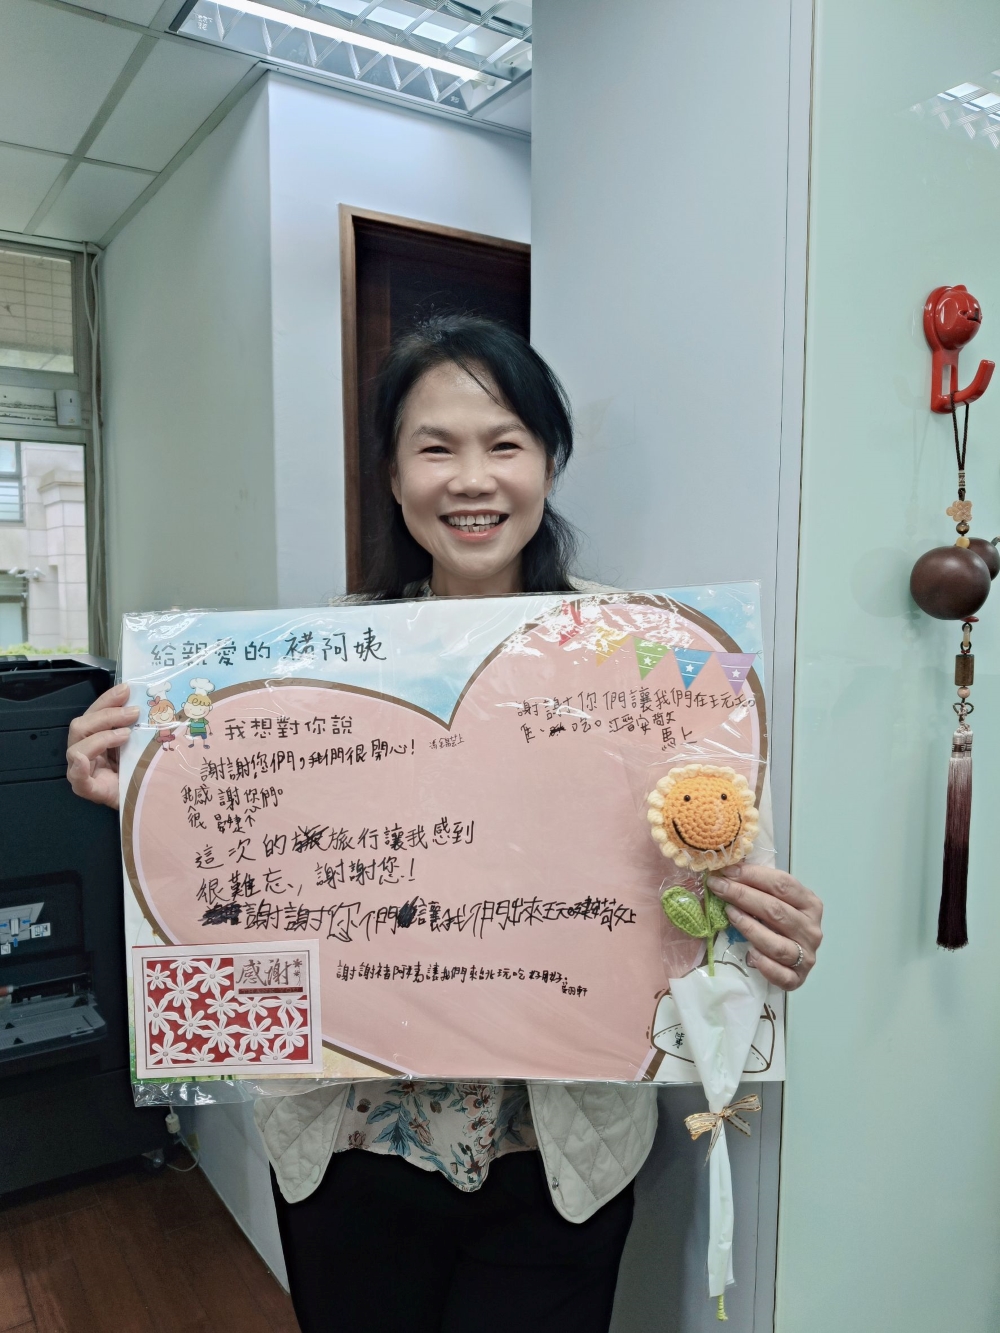 給親愛的 褚阿姨
我想對你說
謝謝您們，我們很開心！
我感謝您們。
很
這次的旅行讓我感到
很難忘，謝謝您！
謝謝您們讓我們出來玩
謝謝褚阿姨讓我們來台北玩吃好用好。
謝謝你們讓我們在玩
吃。江晉安敬
馬上
感謝